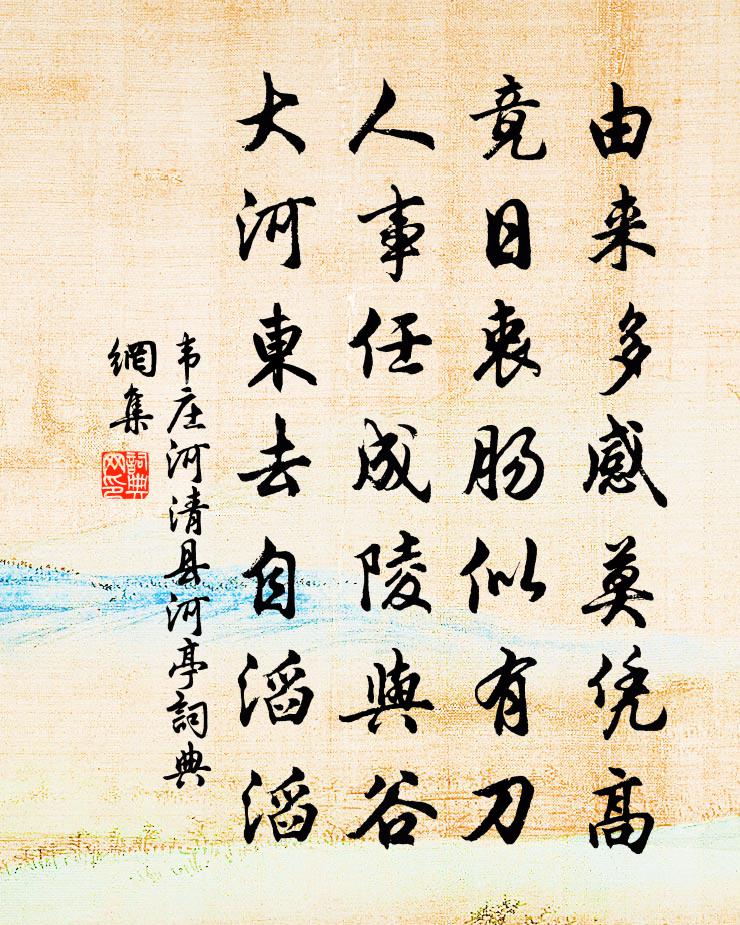 由来多感莫凭高
竟日衷肠似有刀
人事任成陵與谷
大河東去自滔滔
韦庄河清县河亭詞典
網集
詞典
网印